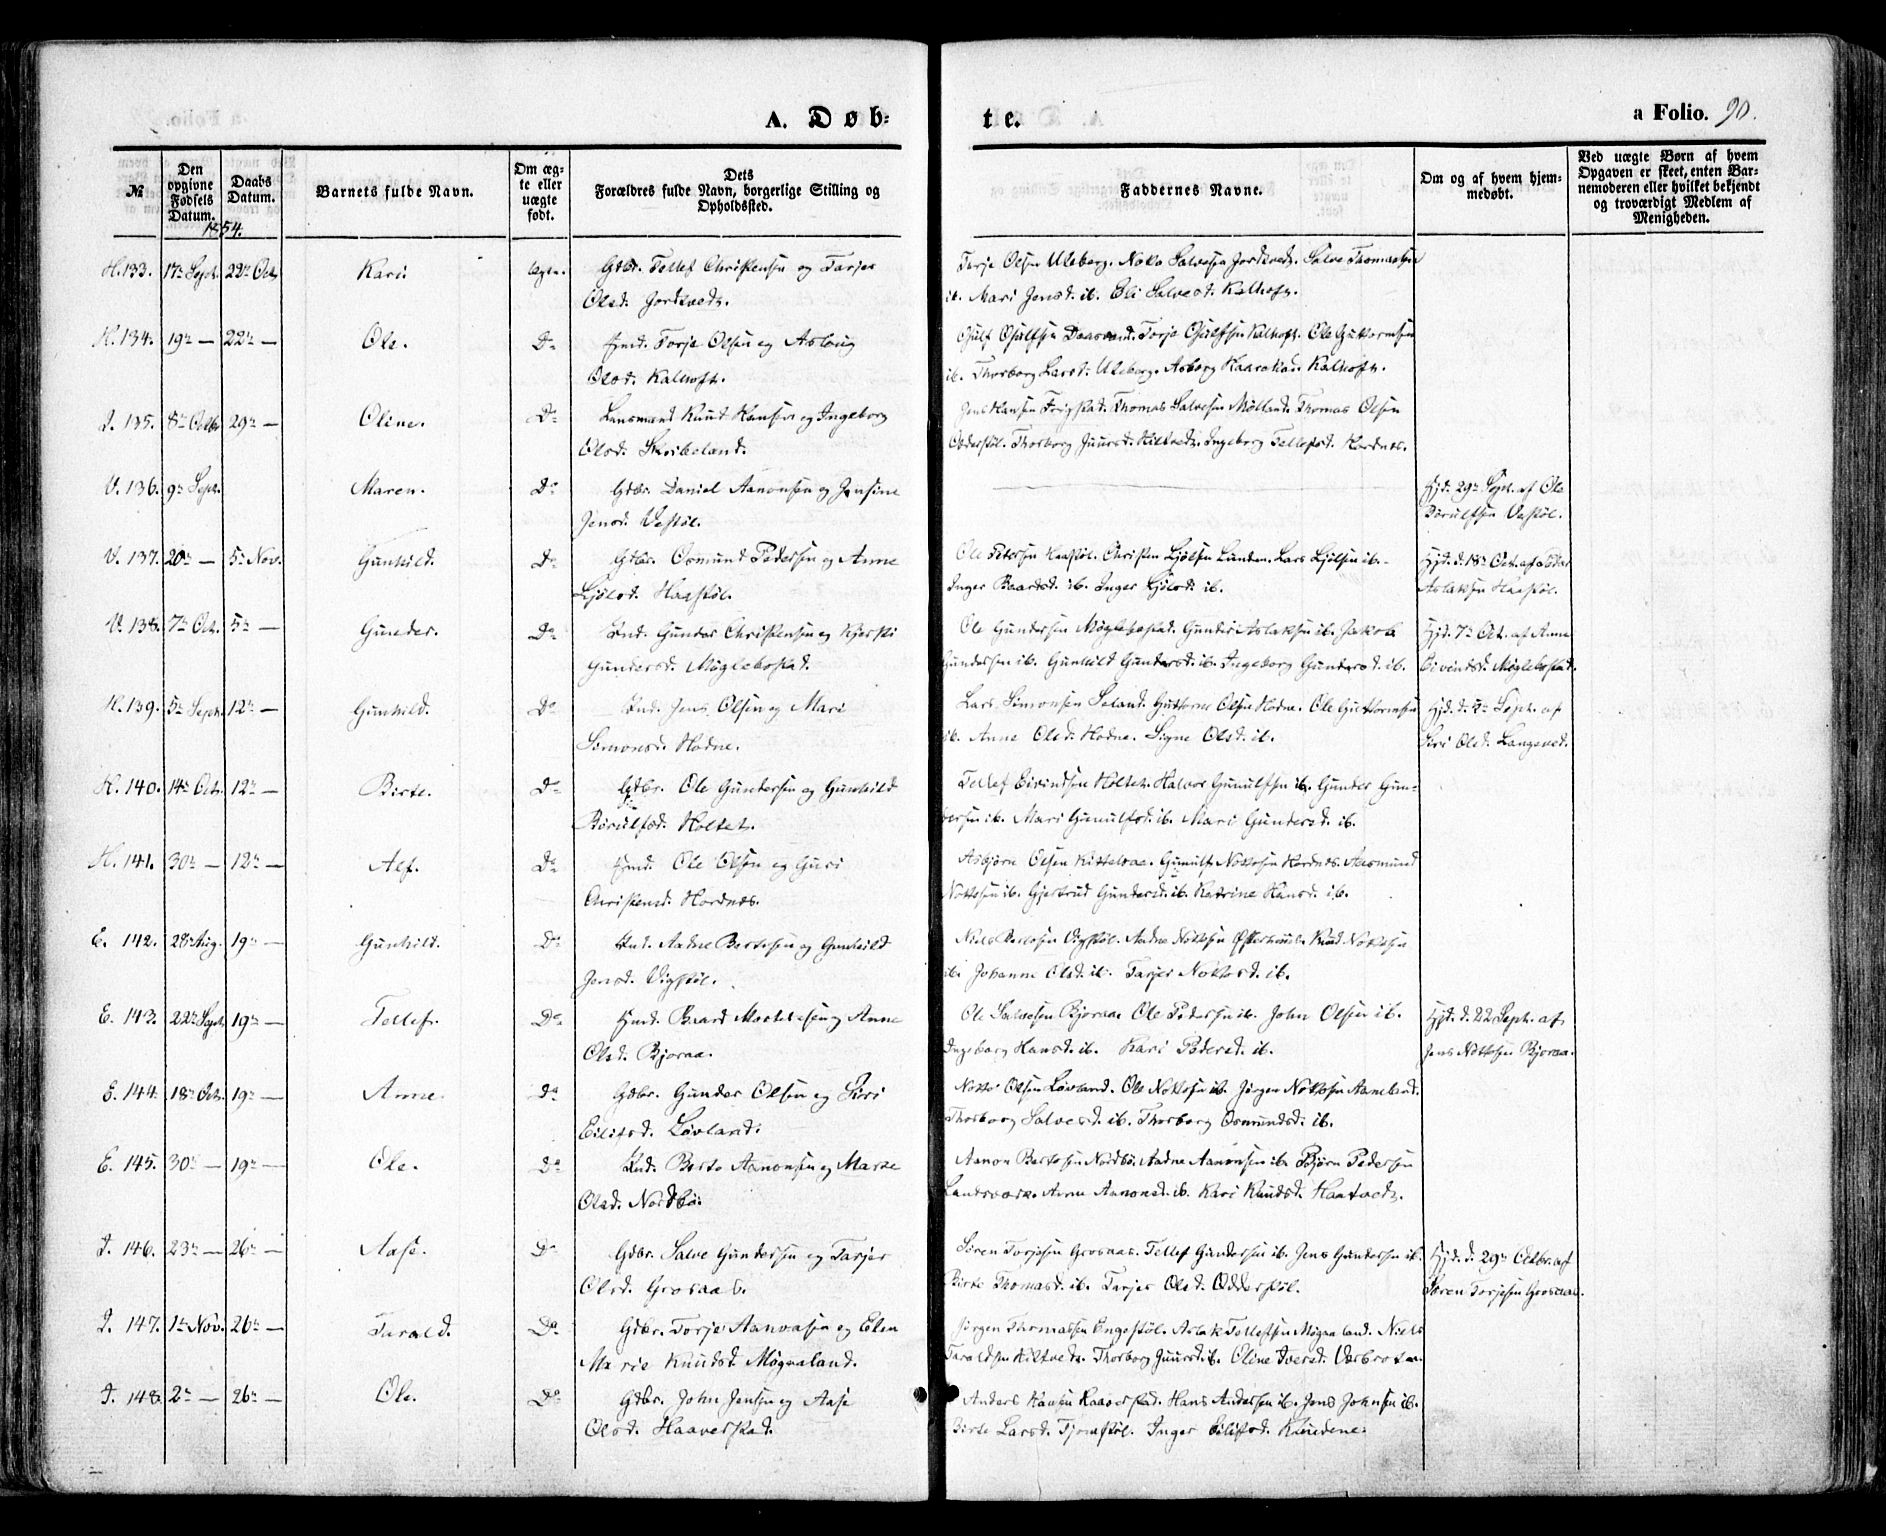 A. Døb-
te.
a Folio. 90.
№
Den opgivne Fødsels Datum.
Daabs Datum.
Barnets fulde Navn.
Om ægte eller uægte født.
Dets Forældres fulde Navn, borgerlige Stilling og Opholdssted.
Faddernes Navne.
Om og af hvem hjemmedøbt.
Ved uægte Børn af hvem Opgaven er skeet, enten Barnemoderen eller hvilket bekjendt og troværdigt Medlem af Menigheden.
1854.
H. 133. 17de Sept. 22de Oct. Kari Ægte. Gdbr. Tellef Christensen og Tarjer
Olsd. Jordtvedt.
Tarje Olsen Uleberg. Salvesen Jordtvedt. Salve Thomassen
ib. Mari Jensd. ib. Eli Salvesd. Kalhoft.
H. 134. 19de — 22de — Ole. Do Torje Olsen og Aslaug
Olsd. Kalhoft.
Gjulf Gjulfsen Torje Gjulfsen Kalhoft. Ole Guttormsen
ib. Thorborg Larsd. Uleberg. Asborg Kalhoft.
I. 135. 8de Octbr 29de — Oline. Do Lensmand Knut Hansen og Ingeborg
Olsd. Skribeland.
Jens Hansen Thomas Salvesen Mølland. Thomas Olsen
Odderstøl. Thorborg Juursd. Hiltvedt. Ingeborg Tellefsd. Hordnes.
V. 136. 9de Sept. Maren. Do Gdbr. Daniel Aanonsen og Jensine
Jensd. Vestøl.
Hjd. 29de Sept. af Ole
Børulfsen Vestøl.
V. 137. 20de — 5te Nov. Gunhild. Do Gdbr. Osmund Pedersen og Anne
Ljølsd. Haastøl.
Ole Pedersen Haastøl. Christen Ljølsen Lunden. Lars Ljølsen ib.
Inger Baardsd. ib. Inger Ljølsd. ib.
Hjd. d. 18de Oct. af Peder
Aslaksen Haastøl.
V. 138. 7de Oct. 5te — Gunder. Do Ind. Gunder Christensen og Kjersti
Gundersd. Møglebostad.
Ole Gundersen Møglebostad. Gunder Aslaksen ib. Jakob
Gundersen ib. Gunhild Gundersd. ib. Ingeborg Gundersd. ib.
Hjd. 7de Oct. af Anne
Eivindsd. Møglebostad.
H. 139. 5te Sept. 12te — Gunhild. Do Ind. Jens Olsen og Mari
Simonsd. Hodne.
Lars Simonsen Seland. Guttorm Olsen Hodne. Ole Guttormsen
ib. Anne Olsd. Hodne. Signe Olsd. ib.
Hjd. d. 5te Sept. af
Siri Olsd. Langeved.
H. 140. 14de Oct. 12te — Birte. Do Gdbr. Ole Gundersen og Gunhild
Børulfsd. Holtet.
Tellef Eivindsen Holtet. Halvor Gunulfsen ib. Gunder Gun-
dersen ib. Mari Gunulfsd. ib. Mari Gundersd. ib.
H. 141. 30te — 12te — Alf. Do Ole Olsen og Guri
Christensd. Hordnes.
Asbjørn Olsen Kittelsaa. Gunulf Nottosen Hordnes. Aasmund
Nottosen ib. Gjertrud Gundersd. ib. Katrine Hansd. ib.
E. 142. 28de Aug. 19de — Gunhild. Do Ind. Aadne Bertosen og Gunhild
Jensd. Vigstøl.
Niels Bertosen Vigstøl. Aadne Nottosen Knud Nottosen
ib. Johanne Olsd. ib. Tarjer Nottosd. ib.
E. 143. 22de Sept. 19de — Tellef. Do Baard og Anne
Olsd. Bjoraa.
Ole Salvesen Bjoraa Ole Pedersen ib. John Olsen ib.
Ingeborg Hansd. ib. Kari Pedersd. ib.
Hjd. d. 22 Sept. af
Jens Nottosen Bjoraa.
E. 144. 18de Oct. 19de — Anne. Do Gdbr. Gunder Olsen og Siri
Eilifsd. Løvland.
Notto Olsen Løvland. Ole Nottosen ib. Jørgen Nottosen Aaneland.
Thorborg Salvesd. ib. Thorborg Osmundsd. ib.
E. 145. 30te — 19de — Ole. Do Ind. Berto Aanonsen og Marte
Olsd. Nordbø.
Aanon Bertosen Nordbø. Aadne Aanonsen ib. Bjørn Pedersen
Landsværk. Anne Aanonsd. ib. Kari Knudsd. Haatvedt.
I. 146. 23de — 26de — Aase. Do Gdbr. Salve Gundersen og Tarjer
Olsd. Grosaas.
Søren Torjesen Grosaas. Tellef Gundersen ib. Jens Gundersen ib.
Birte Thomasd. ib. Tarjer Olsd. Odderstøl.
Hjd. d. 29de Octbr. af
Søren Torjesen Grosaas.
I. 147. 1ste Nov. 26de — Tarald. Do Gdbr. Torje Aanonsen og Elen
Marie Knudsd. Møgnaland.
Jørgen Thomassen Engestøl. Aslak Tellefsen Møgnaland. Niels
Taraldsen Hiltvedt. Thorborg Juursd. ib. Oline Iversd.
I. 148. 2de — 26de — Ole. Do Gdbr. John Jensen og Aase
Olsd. Haaverstad.
Anders Hansen Haaverstad. Hans Andersen ib. Jens Johnsen ib.
Birte Larsd. Tjomstøl. Inger Eilifsd. Knudene.